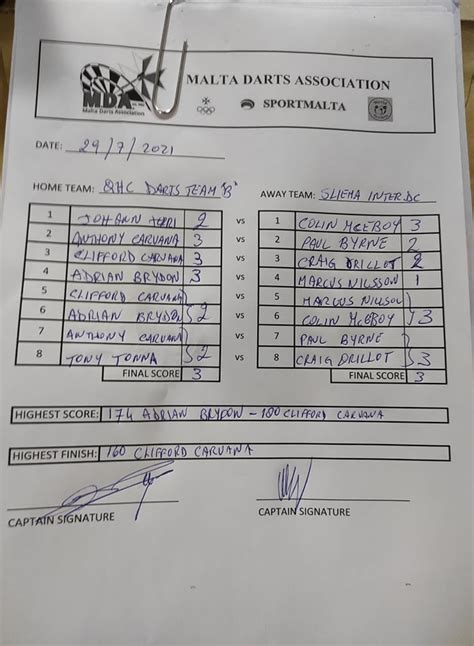 MDA
Malta Darts Association
MALTA DARTS ASSOCIATION
SPORTMALTA
DATE: 29/7/2021
HOME TEAM: QHC DARTS TEAM "B" AWAY TEAM: SLIEMA INTER.DC
1 JOHANN 2 vs 1 COLIN MCEBOY 3
2 ANTHONY CARUANA 3 vs 2 PAUL BYRNE 2
3 CLIFFORD CARUANA 3 vs 3 CRAIG DRILLOT 2
4 ADRIAN BRYDON 3 vs 4 MARCUS NILSSON 1
5 CLIFFORD CARUANA vs 5 MARCUS NILLSON
6 ADRIAN BRYDON 2 vs 6 COLIN MCEBOY 3
7 ANTHONY CARUANA vs 7 PAUL BYRNE
8 TONY TONNA 2 vs 8 CRAIG DRILLOT 3
FINAL SCORE 3 FINAL SCORE 3
HIGHEST SCORE: 174 ADRIAN BRYDON - 180 CLIFFORD CARUANA
HIGHEST FINISH: 160 CLIFFORD CARUANA
CAPTAIN SIGNATURE CAPTAIN SIGNATURE